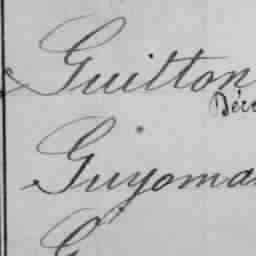 Guitton
Déc
Guyoma
G